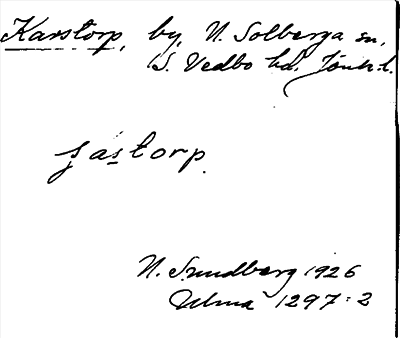 Karstorp, by, N. Solberga sn,
S. Vedbo hd. Jönk. l.
jástorp.
N. Sundberg 1926
Ulma 1297:2